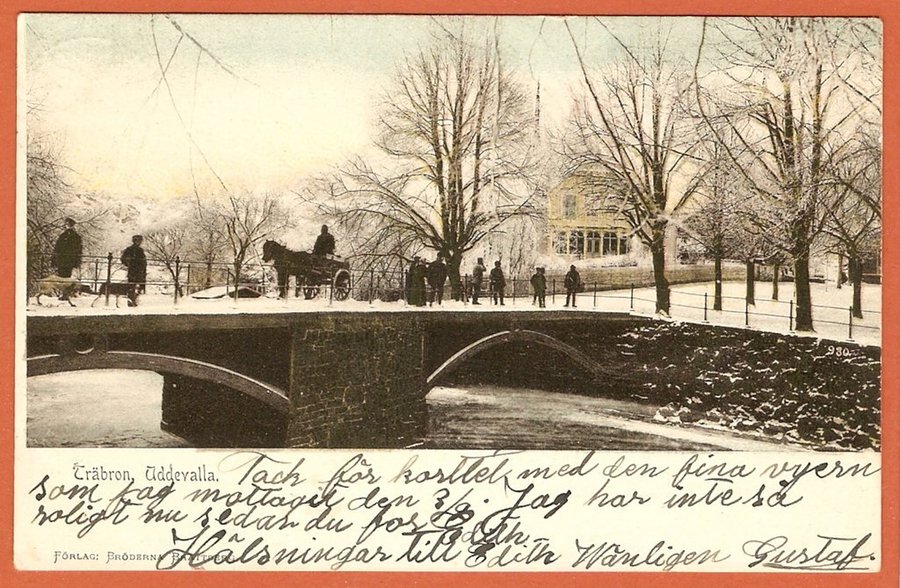 980
Träbron, Uddevalla.
Tack för kortet med den fina vyern
som jag mottagit den 3/9. Jag har inte så
roligt nu sedan du for
Edith.
Hälsningar till Edith Wänligen Gustaf.
FÖRLAG: BRÖDERNA BRATTBERG